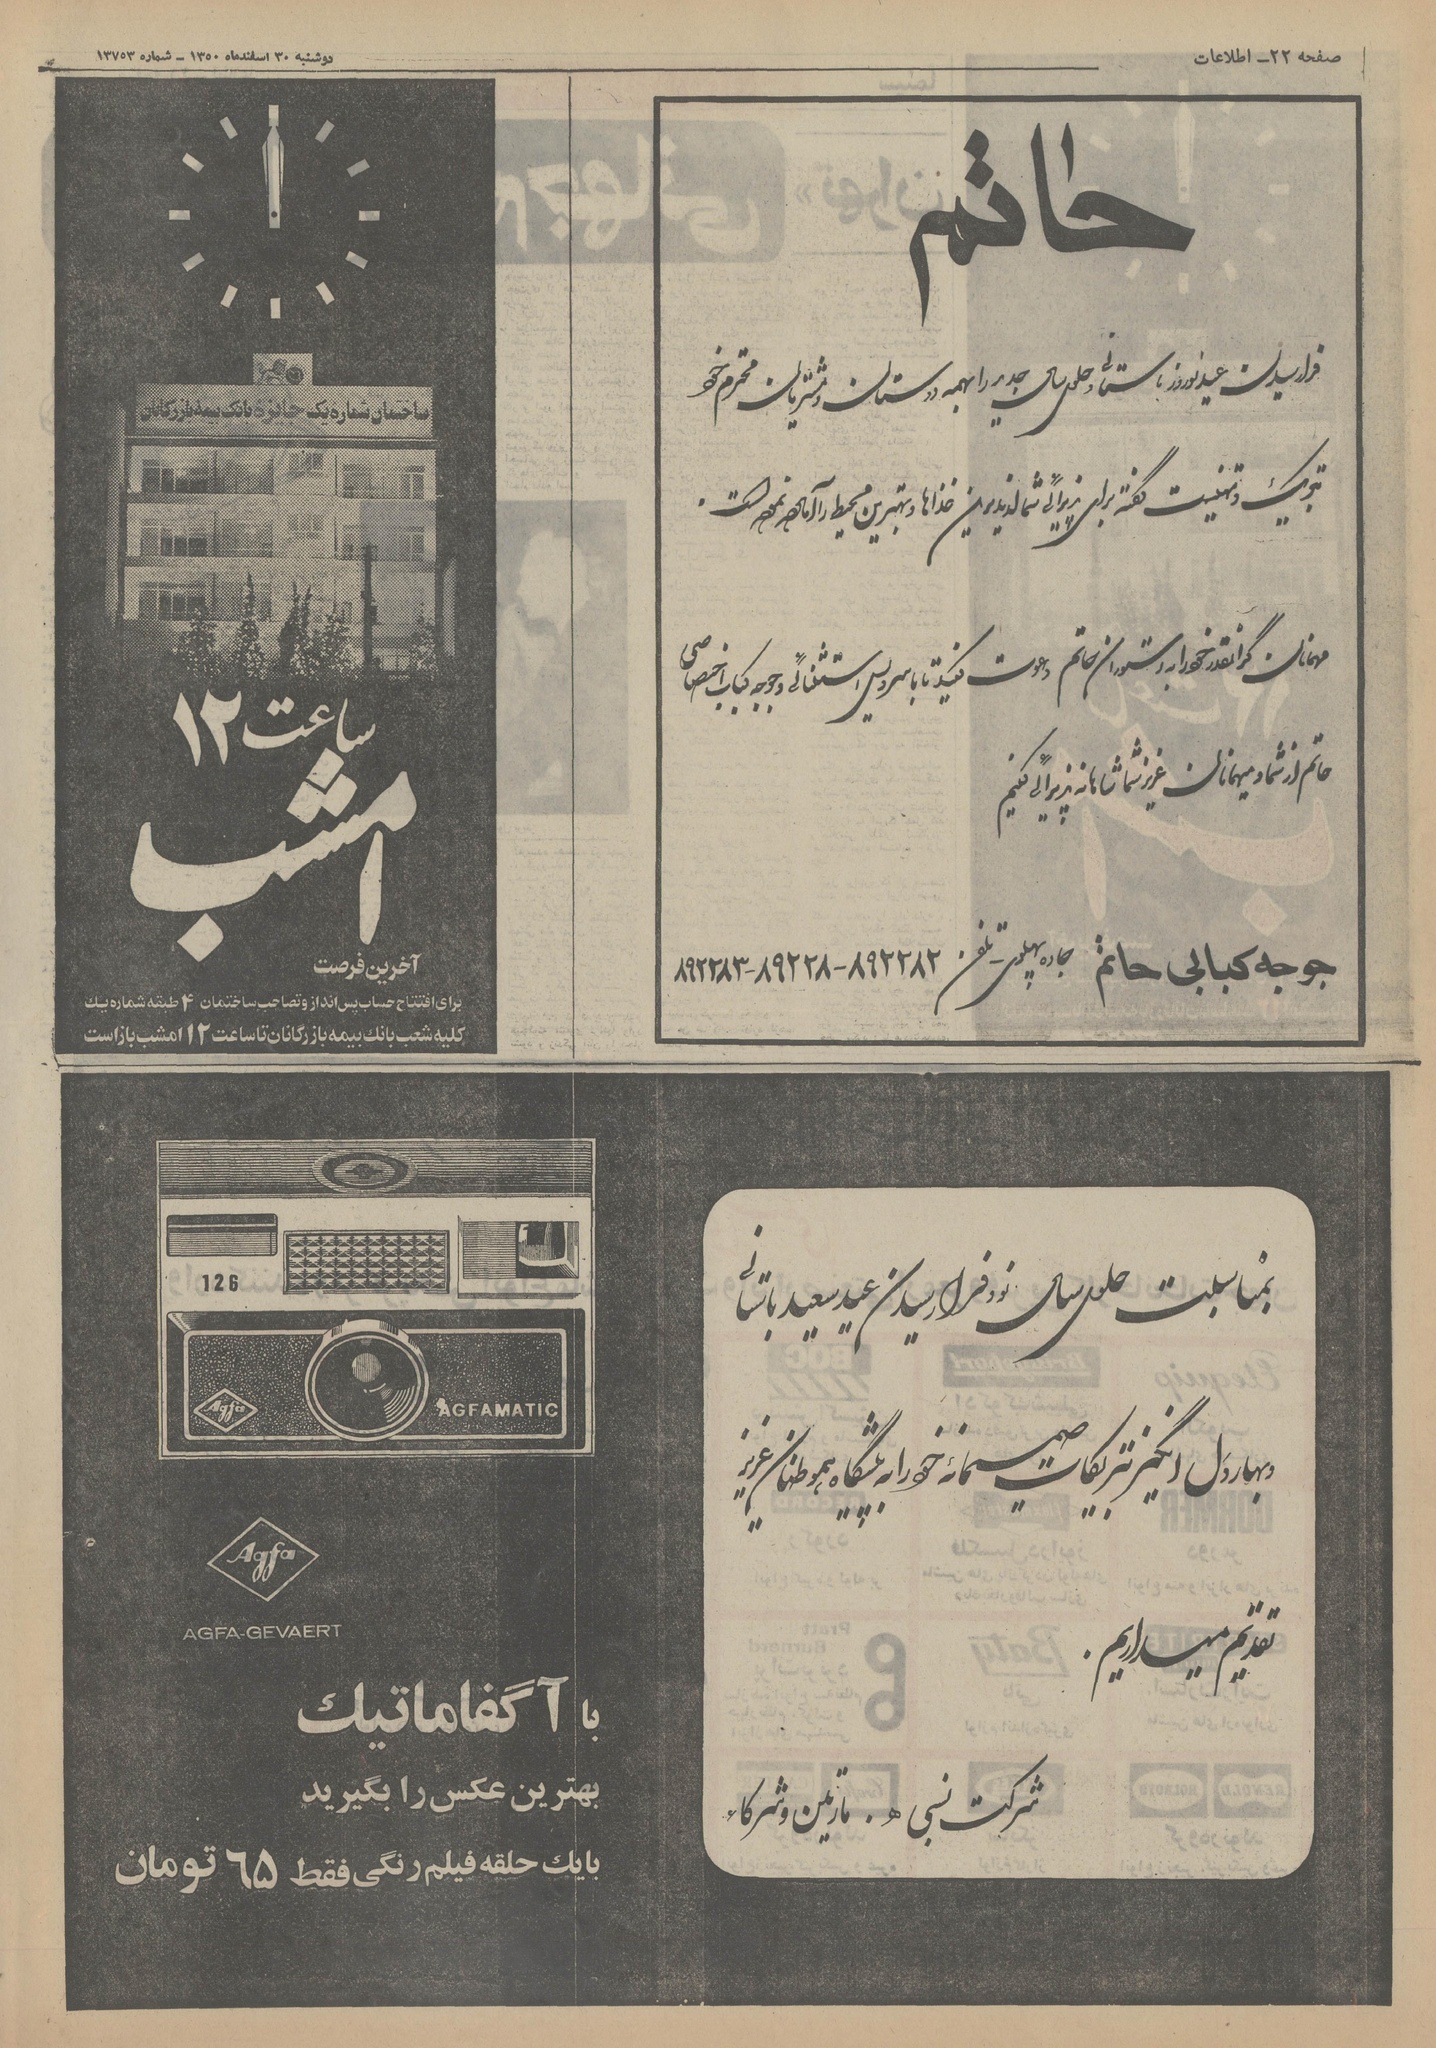 صفحه ۲۲ـ اطلاعات
دوشنبه ۳۰ اسفندماه ۱۳۵۰ ـ شماره ۱۳۷۵۳
حاتم
فرارسیدن عید نوروز باستانی و حلول سال جدید را بهمه دوستان و مشتریان محترم خود
تبریک و تهنیت گفته برای پذیرائی شما لذیذترین غذاها و بهترین محیط را آماده نموده است .
مهمانان گرانقدر خود را به رستوران حاتم دعوت کنید تا با سرویس استثنائی و جوجه کباب اختصاصی
حاتم از شما و میهمانان عزیز شما شاهانه پذیرائی کنیم
جوجه کبابی حاتم جاده پهلوی ـ تلفن ۸۹۲۲۸۲-۸۹۲۲۸-۸۹۲۲۸۳
ساختمان شماره یک جایزه بانک بیمه بازرگانان
ساعت ۱۲
امشب
آخرین فرصت
برای افتتاح حساب پس انداز و تصاحب ساختمان ۴ طبقه شماره یک
کلیه شعب بانک بیمه بازرگانان تا ساعت ۱۲ امشب باز است
بمناسبت حلول سال نو و فرارسیدن عید سعید باستانی
و بهار دل انگیز تبریکات صمیمانه خود را به پیشگاه هموطنان عزیز
تقدیم میداریم .
شرکت نسبی ه . مارتین و شرکاء
126
Agfa
AGFAMATIC
Agfa
AGFA-GEVAERT
با آگفاماتیک
بهترین عکس را بگیرید
با یک حلقه فیلم رنگی فقط ۶۵ تومان